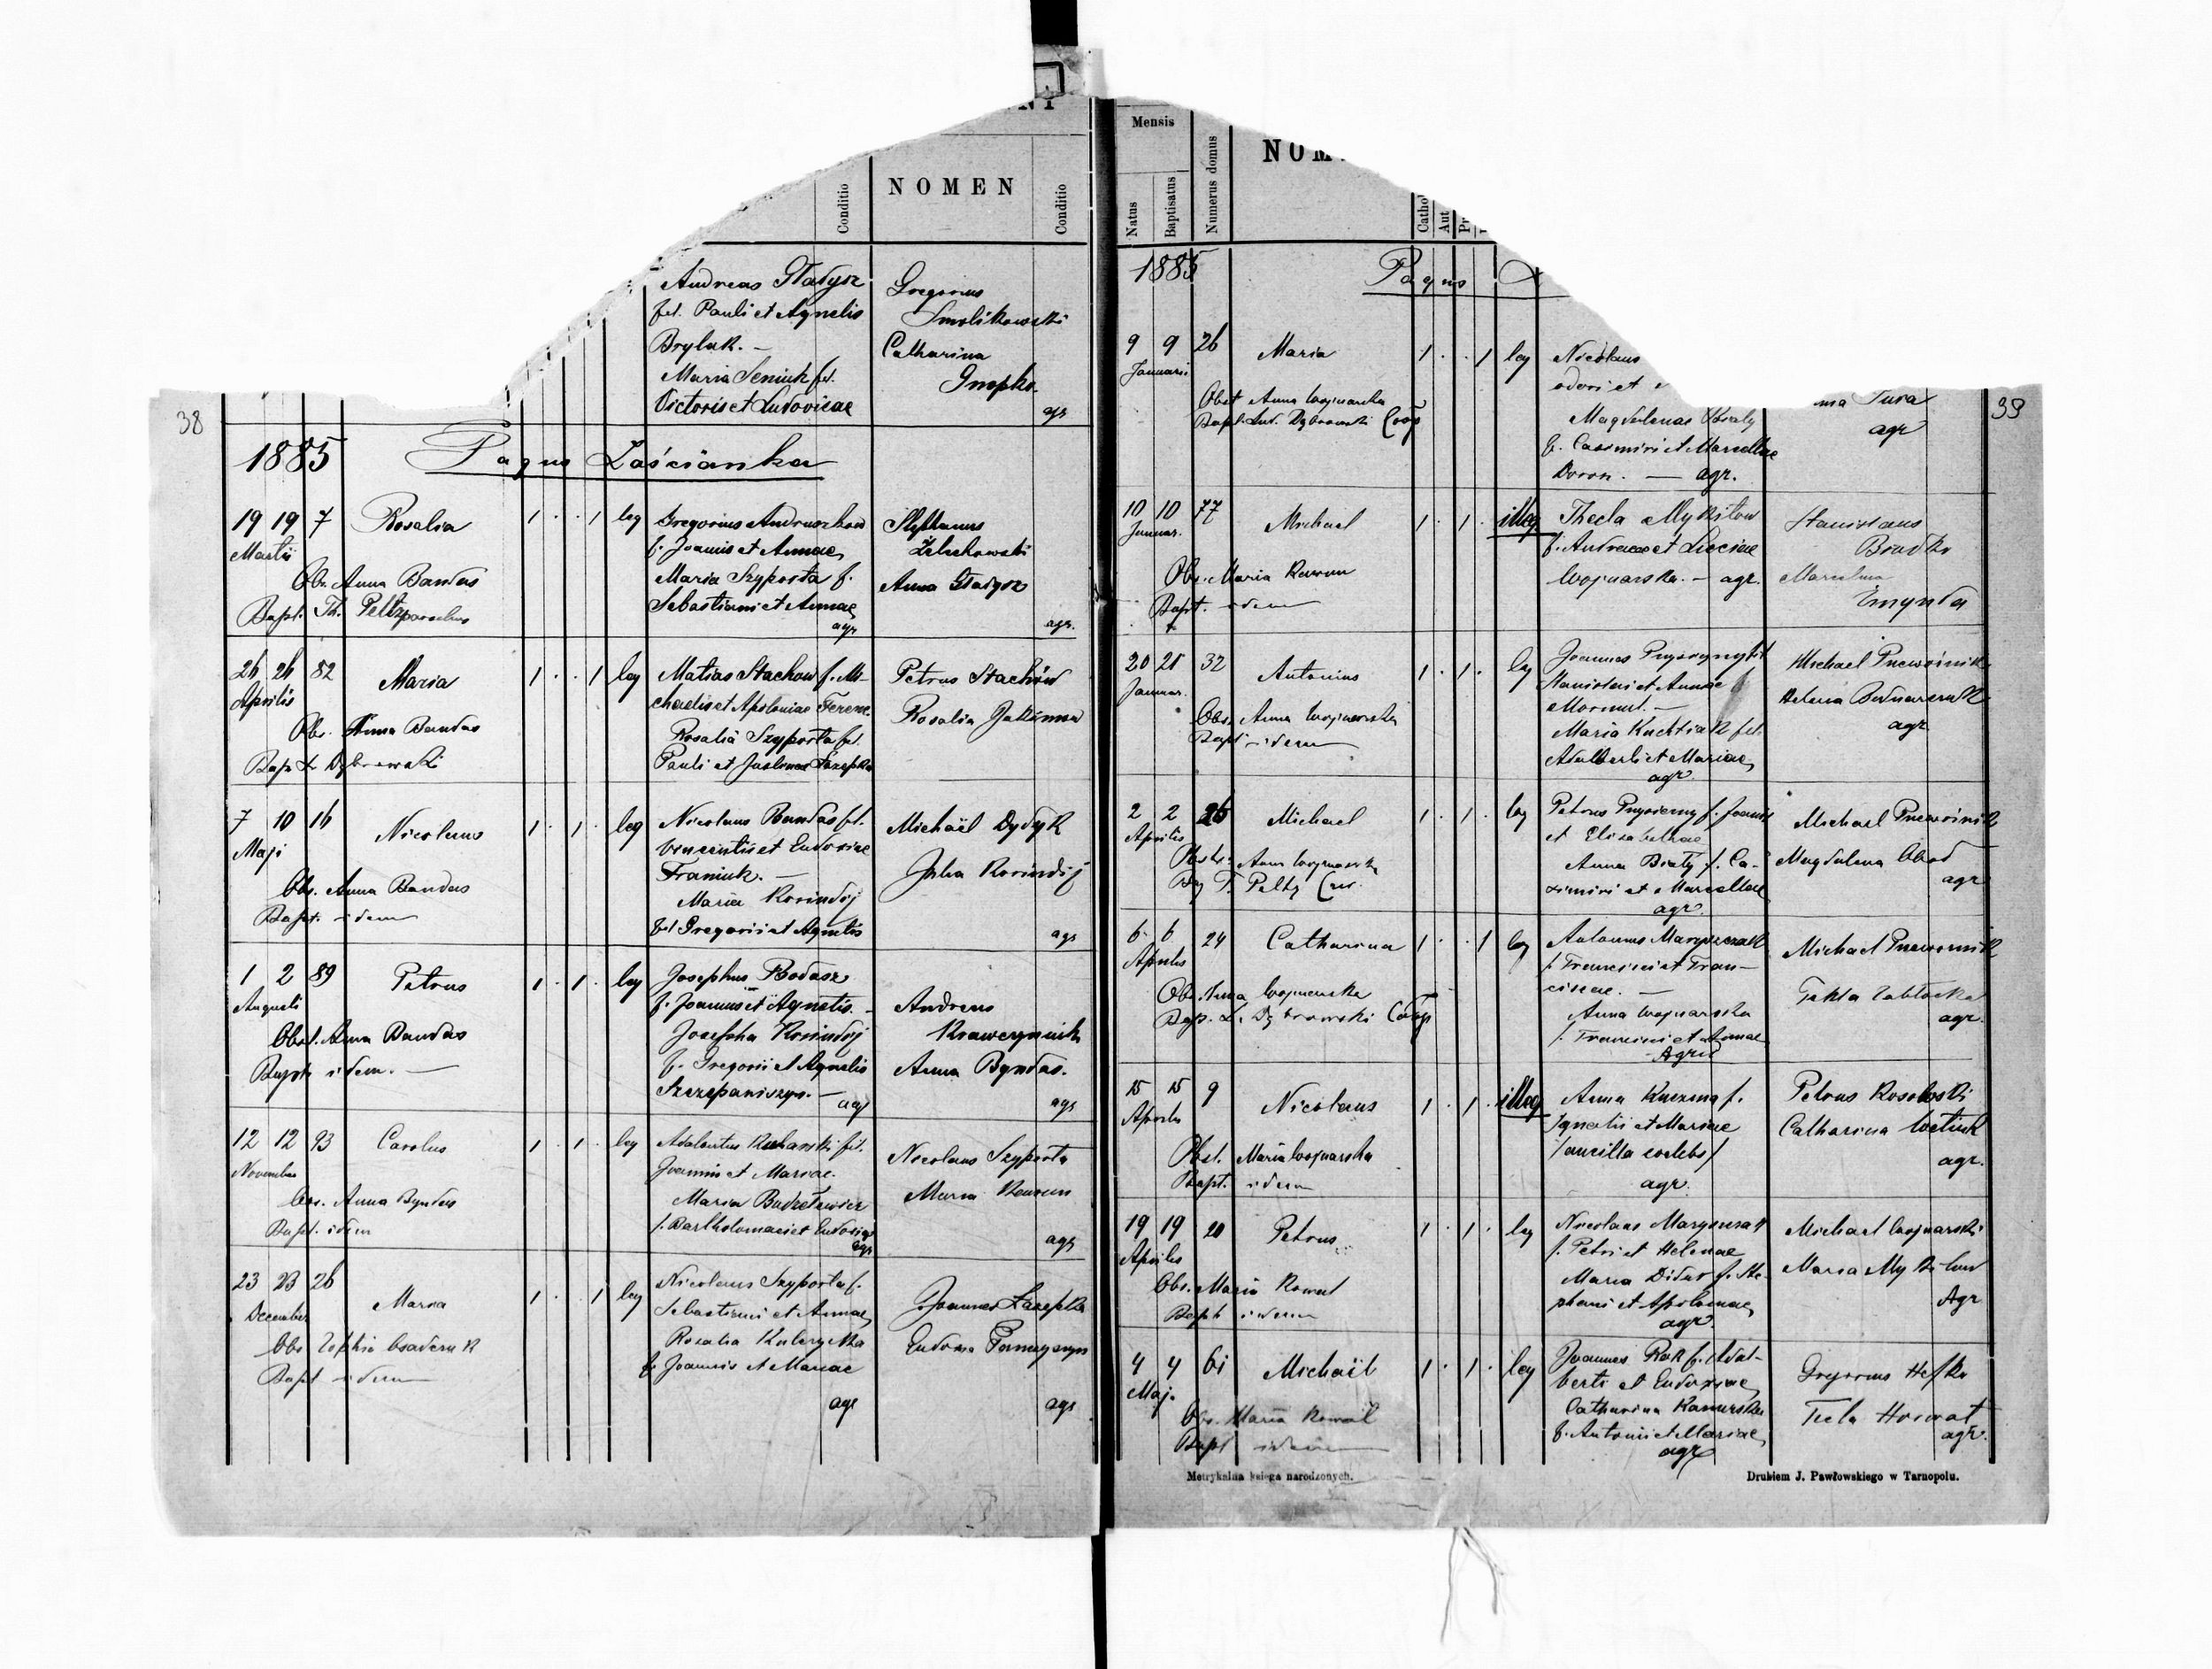 NOMEN
Conditio
Conditio
Andreas Gładysz
fil. Pauli et Agnetis
Brylak. —
Maria Seniuk fil.
Victoris et Ludovicae
Gregorius
Smolikowski
Catharina
agr
38
1885 Pagus Łościanka
19 19 7 Rosalia 1 . . 1 leg
Martii
Obs. Anna Bandas
Bapt. Th. Peltz parochus
Gregorius Andruszkow
f. Joannis et Annae,
Maria Szyposta f.
Sebastiani et Annae
agr
Stephanus
Żelechowski
Anna Gładysz
agr.
26 26 82 Maria 1 . . 1 leg
Aprilis
Obs. Anna Bandas
Bapt. Dąbrowski
Matias Stachow f. Mi-
chaelis et Apoloniae Ferenc.
Rosalia Szyposta fil.
Pauli et Łazepka
Petrus Stachów
Rosalia
7 10 16 Nicolaus 1 . 1 . leg
Maji
Obs. Anna Bandas
Bapt. idem
Nicolaus Bandas fil.
Vincentii et Eudoxiae
Franiuk. —
Maria Korindij
fil Gregorii et Agnetis
Michaël Dydyk
Julia Korindij
agr
1 2 89 Petrus 1 . 1 . leg
Augusti
Obst. Anna Bandas
Bapt. idem. —
Josephus Bodasz
f. Joannis et Agnetis. —
Josepha Korindij
f. Gregorii et Agnetis
Szczepaniszyn. — agr
Andreas
Krawczyniuk
Anna Byndas.
agr
12 12 93 Carolus 1 . 1 . leg
Novembris
Obs. Anna Byndas
Bapt. idem
Adalbertus Kucharski fil.
Joannis et Mariae.
Maria Budzełowicz
f. Bartholomaei et Eudoxiae
agr
Nicolaus Szyposta
Maria
agr
23 23 26 Maria 1 . . 1 leg
Decembris
Obs Zophia
Bapt idem
Nicolaus Szyposta f.
Sebastiani et Annae,
Rosalia
f. Joannis et Mariae
agr
Joannes Łazepka
Eudoxia
agr
Mensis
Natus
Baptisatus
Numerus domus
NOM
Catho
Aut
Pr
39
1885 Pagus
9 9 26 Maria 1 . . 1 leg
Januarii
Obst Anna Wojnarska
Bapt. Lud. Dąbrowski Coop
Nicolaus
odori et
Magdalenae Biały
f. Casimiri et Marcellae
Doron. — agr.
ma Tura
agr
10 10 77 Michael 1 . 1 . illeg
Januar.
Obs. Maria
Bapt. idem
Thecla Mykitow
f. Andreae et Luciae
Wojnarska. — agr.
Stanislaus
Bradko
20 21 32 Antonius 1 . 1 . leg
Januar.
Obs. Anna Wojnarska
Bapt idem
Joannes
Stanislai et Annae
Maria Kuchtiak fil.
Adalberti et Mariae,
agr.
Michael Pneworinik
Helena Bednarczuk
agr
2 2 26 Michael 1 . 1 . leg
Aprilis
Obst. Anna Wojnarska
Bap T. Peltz Cur.
Petrus f. Joannis
et Elisabethae
Anna Biały f. Ca-
simiri et Marcellae
agr.
Michael Pneworinik
Magdalena Obod
agr
6 6 24 Catharina 1 . . 1 leg
Aprilis
Obs. Anna Wojnarska
Bap. L. Dąbrowski Coop
Antonius Maryszczak
f. Francisci et Fran-
ciscae. —
Anna Wojnarska
f. Francisci et Annae
Agric
Michael Pneworinik
Tekla Zabłocka
agr.
15 15 9 Nicolaus 1 . 1 . illeg
Aprilis
Obst. Maria Wojnarska
Bapt. idem
Anna Kuczma f.
Ignatii et Mariae
/ancilla coelebs/
agr.
Petrus Kosoboski
Catharina
agr.
19 19 20 Petrus 1 . 1 . leg
Aprilis
Obs. Maria Kowal
Bapt idem
Nicolaus Maryszczak
f. Petri et Helenae
Maria Didur f. Ste-
phani et Apoloniae,
agr.
Michael Wojnarski
Maria Mykitow
Agr
4 4 61 Michaël 1 . 1 . leg
Maji
Obs. Maria Kowal
Bapt idem
Joannes Rak f. Adal-
berti et Eudoxiae,
Catharina Kamerska
f. Antonii et Mariae,
agr
Gregorius Hefko
Tecla Horwat
agr.
Metrykalna księga narodzonych.
Drukiem J. Pawłowskiego w Tarnopolu.